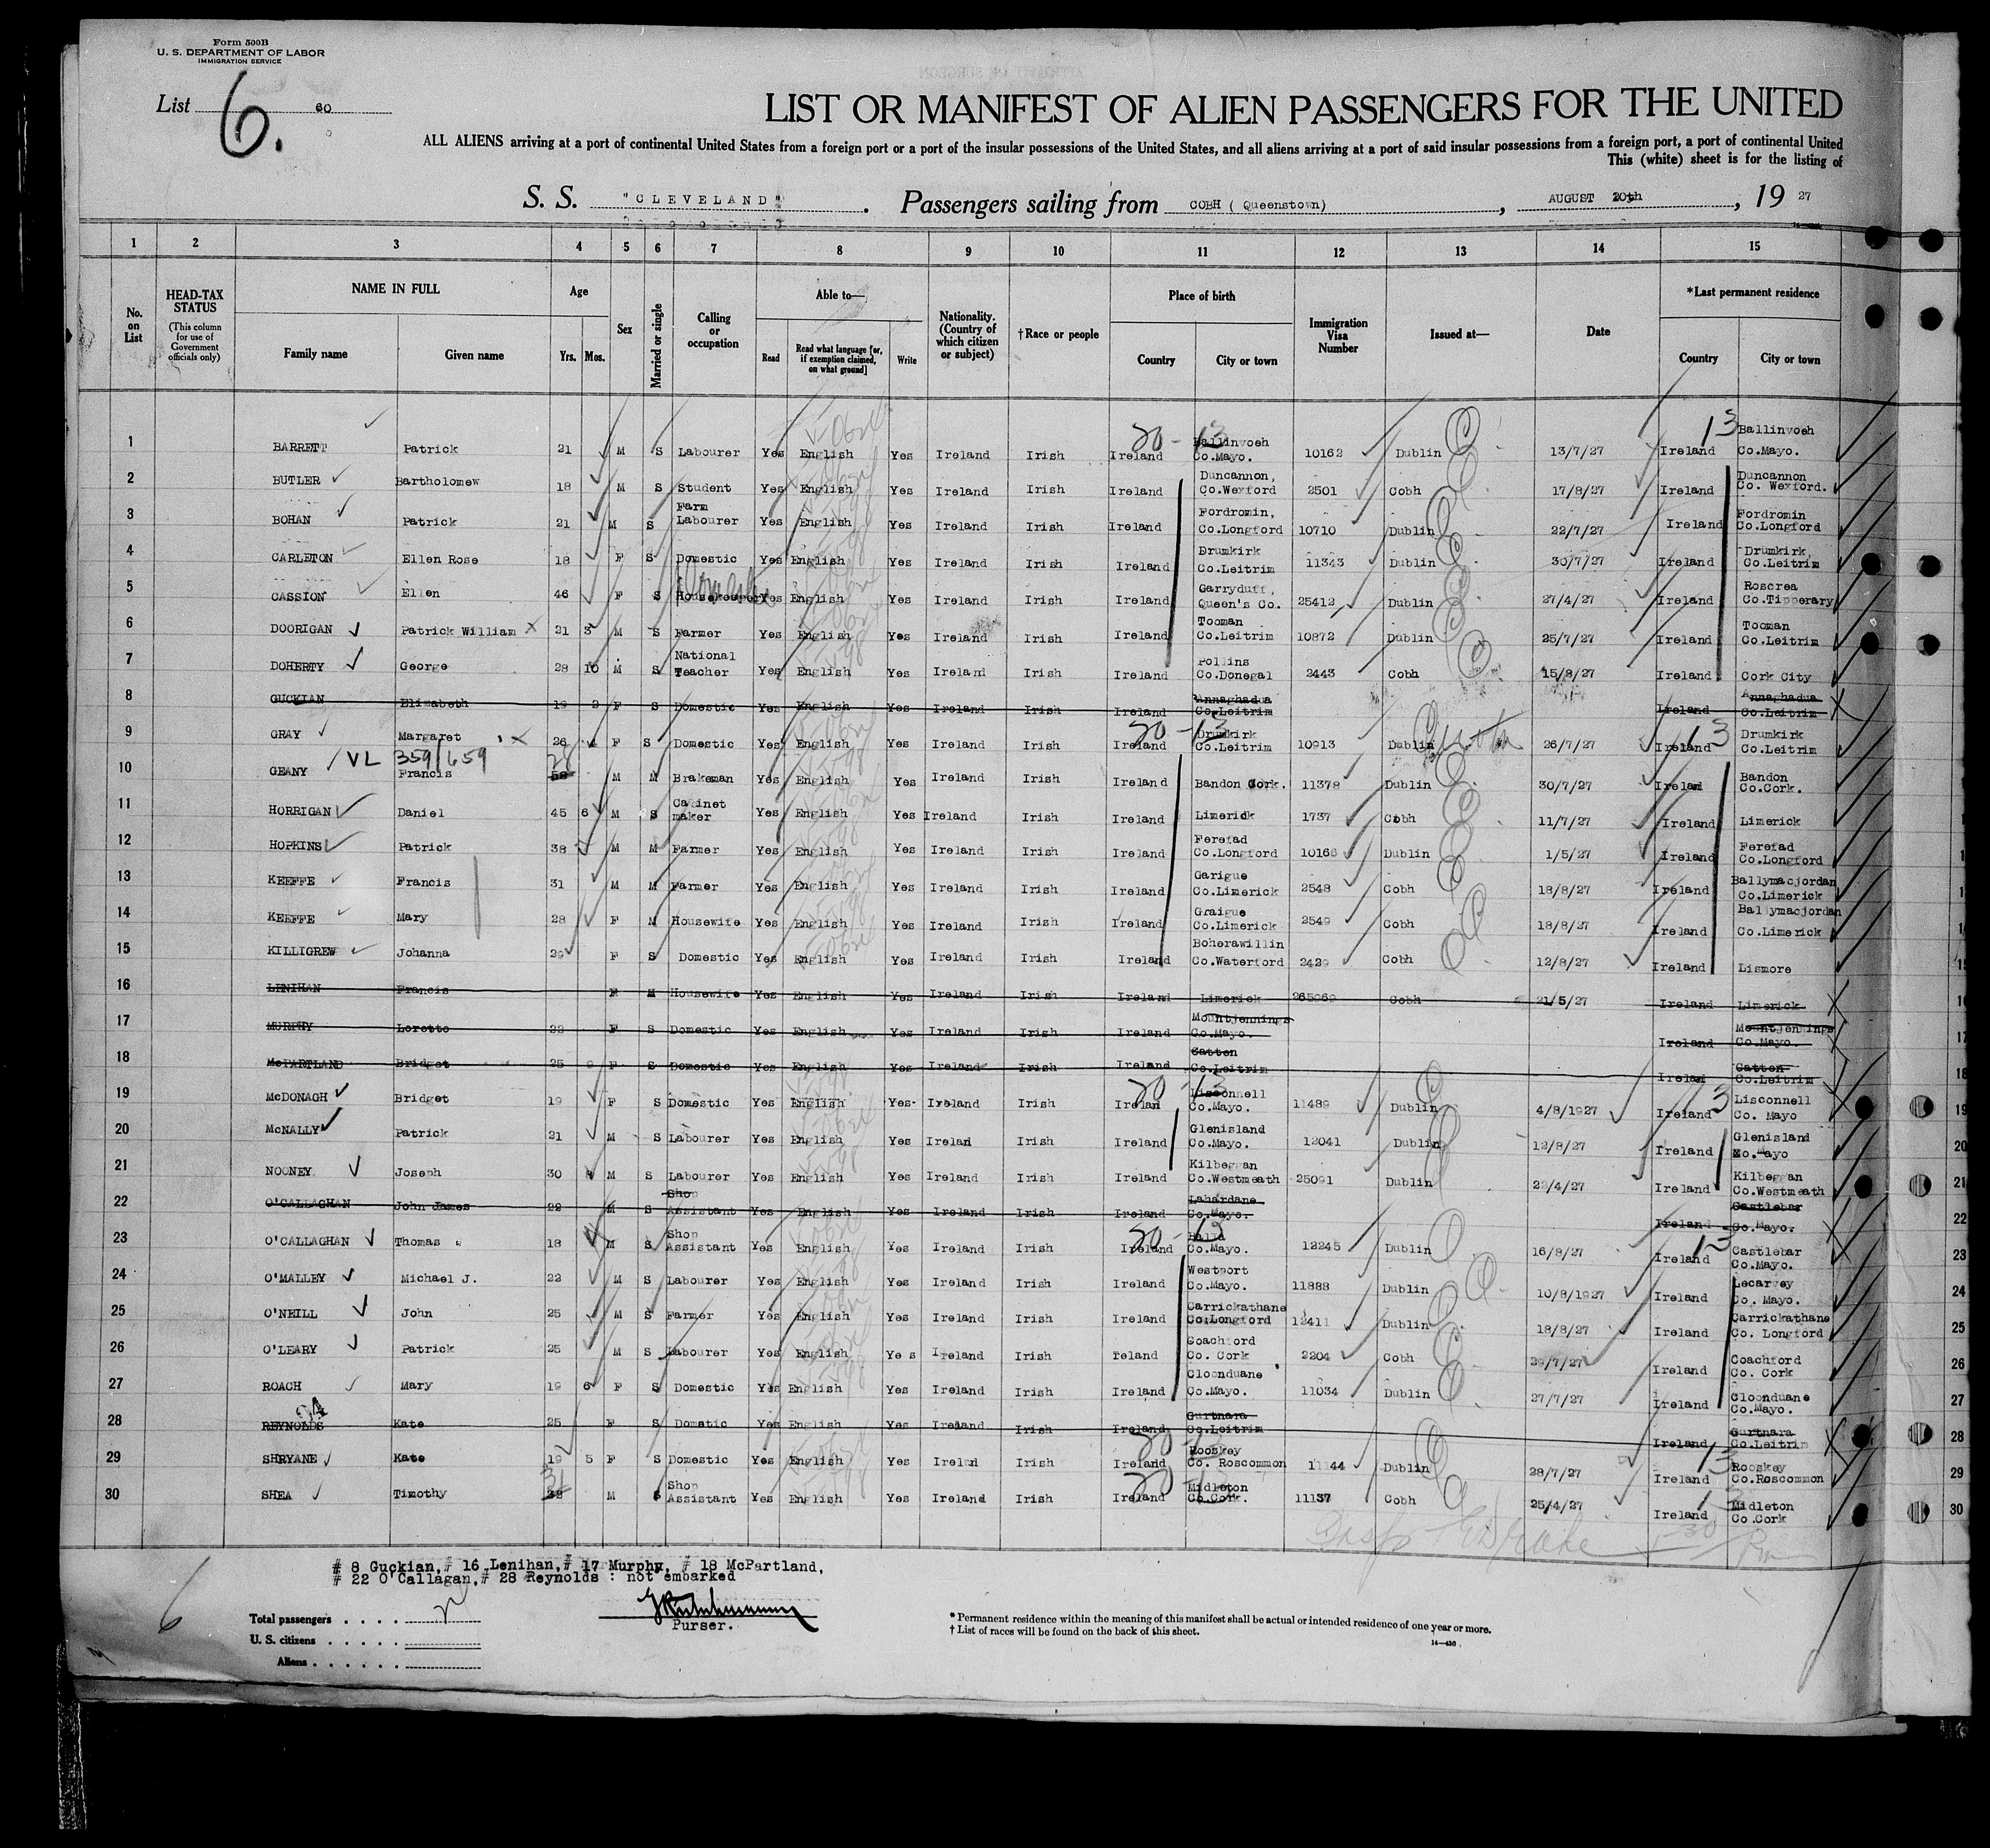 Form 500B
U. S. DEPARTMENT OF LABOR
IMMIGRATION SERVICE
List 6. 60
LIST OR MANIFEST OF ALIEN PASSENGERS FOR THE UNITED
ALL ALIENS arriving at a port of continental United States from a foreign port or a port of the insular possessions of the United States, and all aliens arriving at a port of said insular possessions from a foreign port, a port of continental United
This (white) sheet is for the listing of
S. S. "CLEVELAND". Passengers sailing from COBH ( Queenstown) , AUGUST 20th , 19 27
1 2 3 4 5 6 7 8 9 10 11 12 13 14 15
No. on List HEAD-TAX STATUS (This column for use of Government officials only) NAME IN FULL Family name Given name Age Yrs. Mos. Sex Married or single Calling or occupation Able to— Read Read what language [or, if exemption claimed, on what ground] Write Nationality. (Country of which citizen or subject) †Race or people Place of birth Country City or town Immigration Visa Number Issued at— Date *Last permanent residence Country City or town
1 BARRETT Patrick 21 M S Labourer Yes English Yes Ireland Irish Ireland Ballinvoeh Co.Mayo. 10162 Dublin 13/7/27 Ireland Ballinvoeh Co.Mayo.
2 BUTLER Bartholomew 18 M S Student Yes English Yes Ireland Irish Ireland Duncannon, Co.Wexford 2501 Cobh 17/8/27 Ireland Duncannon Co. Wexford.
3 BOHAN Patrick 21 M S Farm Labourer Yes English Yes Ireland Irish Ireland Fordromin, Co.Longford 10710 Dublin 22/7/27 Ireland Fordromin Co.Longford
4 CARLETON Ellen Rose 18 F S Domestic Yes English Yes Ireland Irish Ireland Drumkirk Co.Leitrim 11343 Dublin 30/7/27 Ireland Drumkirk, Co.Leitrim
5 CASSION Ellen 46 F S Housekeeper Yes English Yes Ireland Irish Ireland Garryduff, Queen's Co. 25412 Dublin 27/4/27 Ireland Roscrea Co.Tipperary
6 DOORIGAN Patrick William 21 3 M S Farmer Yes English Yes Ireland Irish Ireland Tooman Co.Leitrim 10872 Dublin 25/7/27 Ireland Tooman Co.Leitrim
7 DOHERTY George 28 10 M S National Teacher Yes English Yes Ireland Irish Ireland Pollins Co.Donegal 2443 Cobh 15/8/27 Ireland Cork City
8 GUCKIAN Elizabeth 19 2 F S Domestic Yes English Yes Ireland Irish Ireland Annaghadua Co.Leitrim Ireland Annaghadua Co.Leitrim
9 GRAY Margaret 26 F S Domestic Yes English Yes Ireland Irish Ireland Drumkirk Co.Leitrim 10913 Dublin 26/7/27 Ireland Drumkirk Co.Leitrim
VL 359/659
10 GEANY Francis M M Brakeman Yes English Yes Ireland Irish Ireland Bandon Cork. 11378 Dublin 30/7/27 Ireland Bandon Co.Cork.
11 HORRIGAN Daniel 45 6 M S Cabinet maker Yes English Yes Ireland Irish Ireland Limerick 1737 Cobh 11/7/27 Ireland Limerick
12 HOPKINS Patrick 38 M M Farmer Yes English Yes Ireland Irish Ireland Ferefad Co.Longford 10166 Dublin 1/5/27 Ireland Ferefad Co.Longford
13 KEEFFE Francis 31 M M Farmer Yes English Yes Ireland Irish Ireland Garigue Co.Limerick 2548 Cobh 18/8/27 Ireland Ballymacjordan Co.Limerick
14 KEEFFE Mary 28 F M Housewife Yes English Yes Ireland Irish Ireland Graigue Co.Limerick 2549 Cobh 18/8/27 Ireland Ballymacjordan Co.Limerick
15 KILLIGREW Johanna 29 F S Domestic Yes English Yes Ireland Irish Ireland Boherawillin Co.Waterford 2429 Cobh 12/8/27 Ireland Lismore
16 LENIHAN Francis M Housewife Yes English Yes Ireland Irish Ireland Limerick 265069 Cobh 21/5/27 Ireland Limerick
17 MURPHY Loretto 22 F S Domestic Yes English Yes Ireland Irish Ireland Mountjennings Co.Mayo. Ireland Mountjennings Co.Mayo.
18 McPARTLAND Bridget 25 F S Domestic Yes English Yes Ireland Irish Ireland Catton Co.Leitrim Ireland Catton Co.Leitrim
19 McDONAGH Bridget 19 F S Domestic Yes English Yes Ireland Irish Irelan Lisconnell Co.Mayo. 11489 Dublin 4/8/1927 Ireland Lisconnell Co. Mayo
20 McNALLY Patrick 21 M S Labourer Yes English Yes Irelan Irish Ireland Glenisland Co.Mayo. 12041 Dublin 12/8/27 Ireland Glenisland Co.Mayo
21 NOONEY Joseph 30 M S Labourer Yes English Yes Ireland Irish Ireland Kilbeggan Co.Westmeath 25091 Dublin 22/4/27 Ireland Kilbeggan Co.Westmeath
22 O'CALLAGHAN John James 22 M S Shop Assistant Yes English Yes Ireland Irish Ireland Lahardane Co.Mayo. Ireland Castlebar Co.Mayo.
23 O'CALLAGHAN Thomas 18 M S Shop Assistant Yes English Yes Ireland Irish Ireland Balla Co.Mayo. 12245 Dublin 16/8/27 Ireland Castlebar Co.Mayo.
24 O'MALLEY Michael J. 22 M S Labourer Yes English Yes Ireland Irish Ireland Westport Co.Mayo. 11888 Dublin 10/8/1927 Ireland Lecarvey Co. Mayo.
25 O'NEILL John 25 M S Farmer Yes English Yes Ireland Irish Ireland Carrickathane Co.Longford 12411 Dublin 18/8/27 Ireland Carrickathane Co. Longford
26 O'LEARY Patrick 25 M S Labourer Yes English Ye s Ireland Irish reland Coachford Co. Cork 2204 Cobh 29/7/27 Ireland Coachford Co. Cork
27 ROACH Mary 19 6 F S Domestic Yes English Yes Ireland Irish Ireland Cloonduane Co.Mayo. 11034 Dublin 27/7/27 Ireland Cloonduane Co.Mayo.
28 REYNOLDS Kate 25 F S Domstic Yes English Yes Ireland Irish Ireland Gurtnara Co.Leitrim Ireland Gurtnara Co.Leitrim
29 SHRYANE Kate 19 5 F S Domestic Yes English Yes Ireland Irish Ireland Rooskey Co. Roscommon 11144 Dublin 28/7/27 Ireland Rooskey Co.Roscommon
30 SHEA Timothy 31 M S Shop Assistant Yes English Yes Ireland Irish Ireland Midleton Co.Cork. 11137 Cobh 25/4/27 Ireland Midleton Co.Cork
# 8 Guckian,# 16 Lenihan,# 17 Murphy, # 18 McPartland,
# 22 O'Callagan,# 28 Reynolds : not embarked
Purser.
6
Total passengers
U. S. citizens
Aliens
* Permanent residence within the meaning of this manifest shall be actual or intended residence of one year or more.
† List of races will be found on the back of this sheet.
14—430